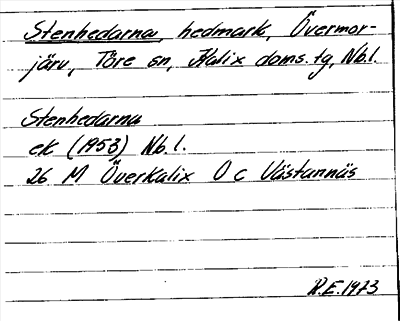 Stenhedarna, hedmark, Övermor-
järv, Töre sn, Kalix doms.tg, Nb.l.
Stenhedarna
ek (1953) Nb.l.
26 M Överkalix O c Västannäs
R.E.1973